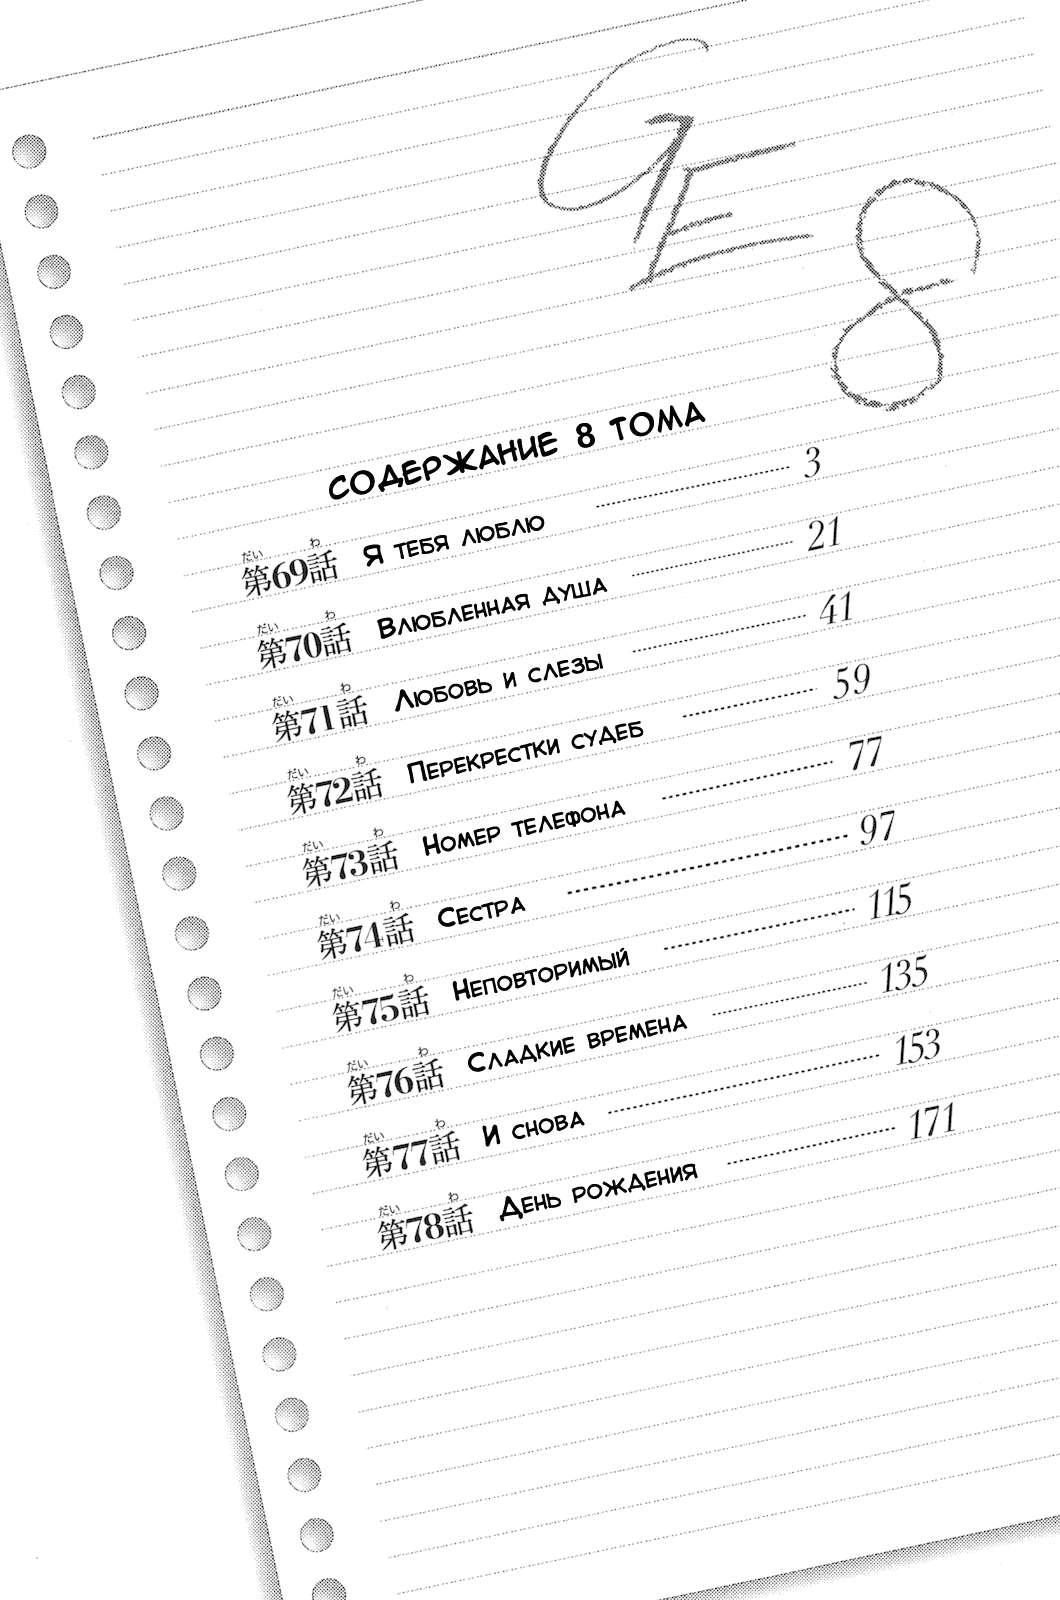 GE
8
СОДЕРЖАНИЕ 8 ТОМА
第69話 Я ТЕБЯ ЛЮБЛЮ 3
第70話 ВЛЮБЛЕННАЯ ДУША 21
第71話 ЛЮБОВЬ И СЛЕЗЫ 41
第72話 ПЕРЕКРЕСТКИ СУДЕБ 59
第73話 НОМЕР ТЕЛЕФОНА 77
第74話 СЕСТРА 97
第75話 НЕПОВТОРИМЫЙ 115
第76話 СЛАДКИЕ ВРЕМЕНА 135
第77話 И СНОВА 153
第78話 ДЕНЬ РОЖДЕНИЯ 171